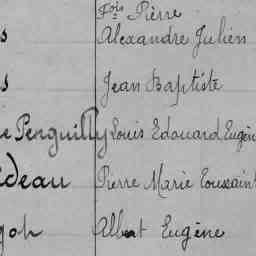 Fois Pierre
s Alexandre Julien
s Jean Baptiste
e Penguilly Louis Edouard Eugèn
ideau Pierre Marie Toussaint
goh Albert Eugène